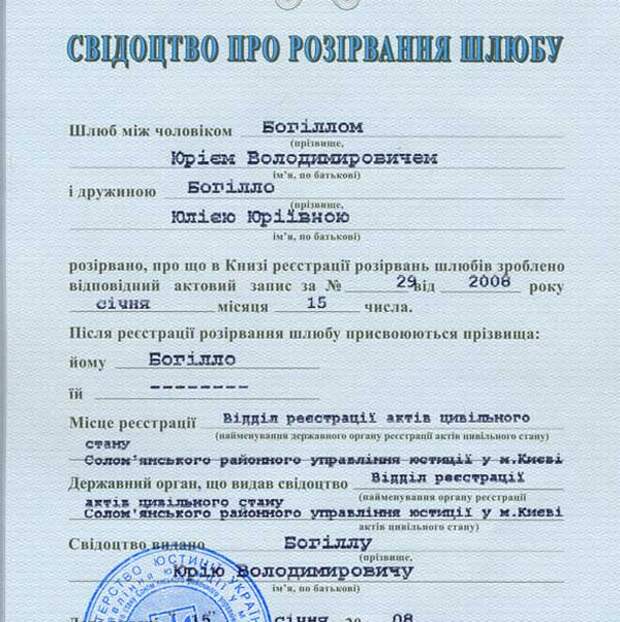 СВІДОЦТВО ПРО РОЗІРВАННЯ ШЛЮБУ
Шлюб між чоловіком Богіллом
(прізвище,
Юрієм Володимировичем
ім'я, по батькові)
і дружиною Богілло
(прізвище,
Юлією Юріївною
ім'я, по батькові)
розірвано, про що в Книзі реєстрації розірвань шлюбів зроблено
відповідний актовий запис за № 29 від 2008 року
січня місяця 15 числа.
Після реєстрації розірвання шлюбу присвоюються прізвища:
йому Богілло
їй --------
Місце реєстрації Відділ реєстрації актів цивільного
(найменування державного органу реєстрації актів цивільного стану)
стану
Солом'янського районного управління юстиції у м.Києві
Державний орган, що видав свідоцтво Відділ реєстрації
(найменування органу реєстрації
актів цивільного стану
Солом'янського районного управління юстиції у м.Києві
актів цивільного стану)
Свідоцтво видано Богіллу
(прізвище,
Юрію Володимировичу
ім'я, по батькові)
15 січня 20 08